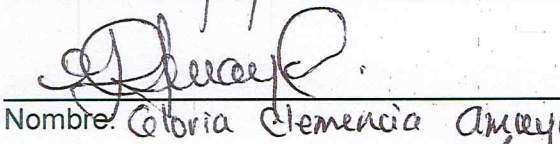 Nombre: Gloria Clemencia Amay